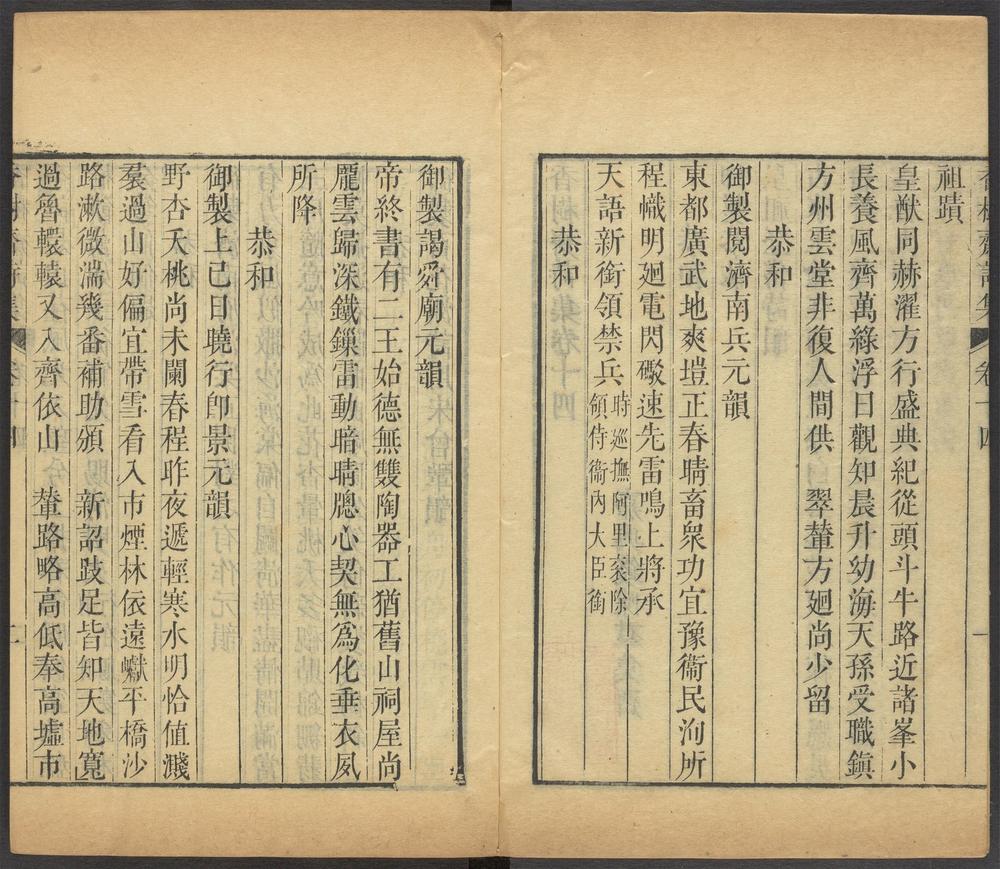 香樹齋詩集 卷十四 一
祖蹟
皇猷同赫濯方行盛典紀從頭斗牛路近諸峯小
長養風齊萬綠浮日觀知晨升幼海天孫受職鎮
方州雲堂非復人間供 翠輦方廻尚少留
恭和
御製閱濟南兵元韻
東都廣武地爽塏正春晴畜衆功宜豫衞民洵所
程幟明廻電閃礮速先雷鳴上將承
天語新銜領禁兵時巡撫阿里袞除領侍衞內大臣銜
恭和
御製謁舜廟元韻
帝終書有二王始德無雙陶器工猶舊山祠屋尚
龎雲歸深鐵鏁雷動暗晴牕心契無爲化垂衣夙
所降
恭和
御製上巳日曉行卽景元韻
野杏夭桃尚未闌春程昨夜遞輕寒水明恰值濺
羣過山好偏宜帶雪看入市煙林依遠巘平橋沙
路漱微湍幾番補助頒 新詔跂足皆知天地寬
過魯轅轅又入齊依山 輦路略高低奉高墟市
香樹齋詩集 卷十四 二